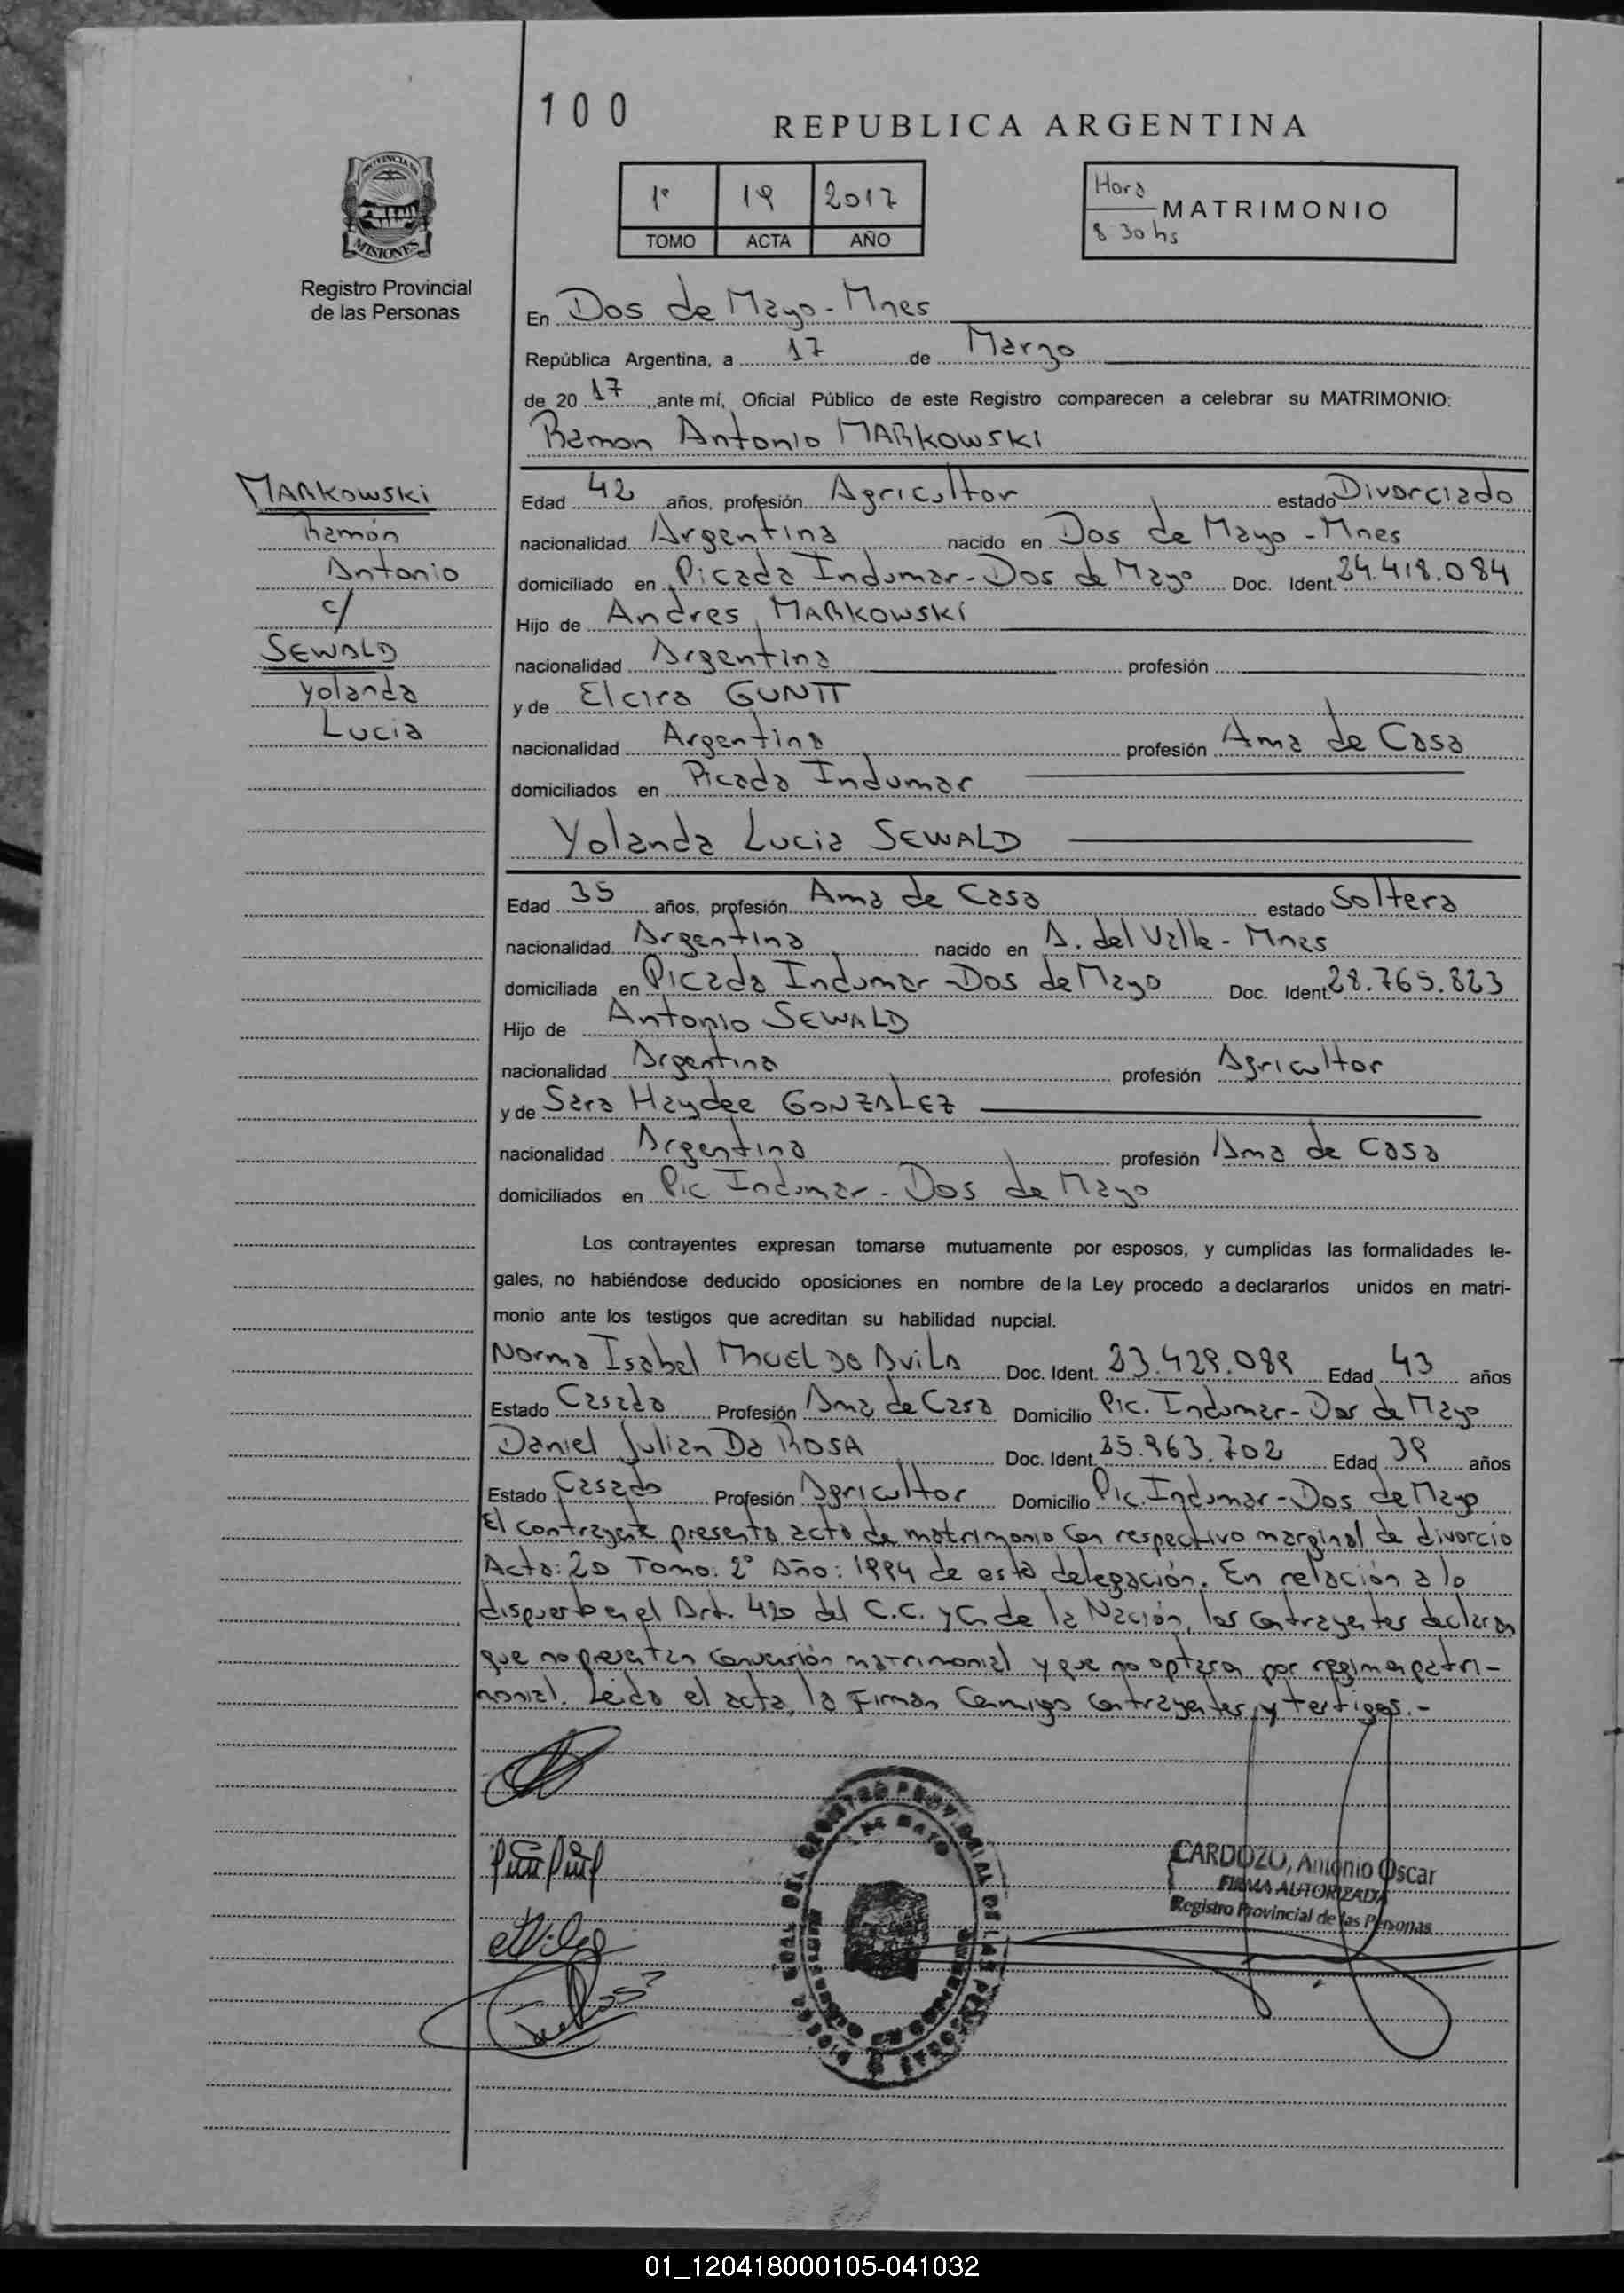 100
REPUBLICA ARGENTINA
PROVINCIA
MISIONES
Registro Provincial
de las Personas
1º 19 2017
TOMO ACTA AÑO
Hora
8 30 hs
MATRIMONIO
En Dos de Mayo - Mnes
República Argentina, a 17 de Marzo
de 20 17, ante mí, Oficial Público de este Registro comparecen a celebrar su MATRIMONIO:
Ramon Antonio MARKOWSKI
MARKOWSKI
Ramón
Antonio
c/
SEWALD
Yolanda
Lucia
Edad 42 años, profesión Agricultor estado Divorciado
nacionalidad Argentina nacido en Dos de Mayo - Mnes
domiciliado en Picada Indumar - Dos de Mayo Doc. Ident. 24.418.084
Hijo de Andres MARKOWSKI
nacionalidad Argentina profesión
y de Elcira GUNTT
nacionalidad Argentina profesión Ama de Casa
domiciliados en Picada Indumar
Yolanda Lucia SEWALD
Edad 35 años, profesión Ama de Casa estado Soltera
nacionalidad Argentina nacido en A. del Valle - Mnes
domiciliada en Picada Indumar - Dos de Mayo Doc. Ident. 28.765.823
Hijo de Antonio SEWALD
nacionalidad Argentina profesión Agricultor
y de Sara Haydee GONZALEZ
nacionalidad Argentina profesión Ama de Casa
domiciliados en Pic. Indumar - Dos de Mayo
Los contrayentes expresan tomarse mutuamente por esposos, y cumplidas las formalidades le-
gales, no habiéndose deducido oposiciones en nombre de la Ley procedo a declararlos unidos en matri-
monio ante los testigos que acreditan su habilidad nupcial.
Norma Isabel DE AVILA Doc. Ident. 23.429.089 Edad 43 años
Estado Casada Profesión Ama de Casa Domicilio Pic. Indumar - Dos de Mayo
Daniel Julian Da ROSA Doc. Ident. 25.963.702 Edad 39 años
Estado Casado Profesión Agricultor Domicilio Pic. Indumar - Dos de Mayo
El contrayente presenta acta de matrimonio con respectivo marginal de divorcio
Acta: 20 Tomo: 2º Año: 1994 de esta delegación. En relación a lo
dispuesto en el Art. 420 del C.C. y C. de la Nación, los contrayentes declaran
que no presentan convensión matrimonial y que no optaron por regimen patri-
monial. Leida el acta, la firman conmigo contrayentes y testigos.-
CARDOZO, Antonio Oscar
FIRMA AUTORIZADA
Registro Provincial de las Personas
01_120418000105-041032